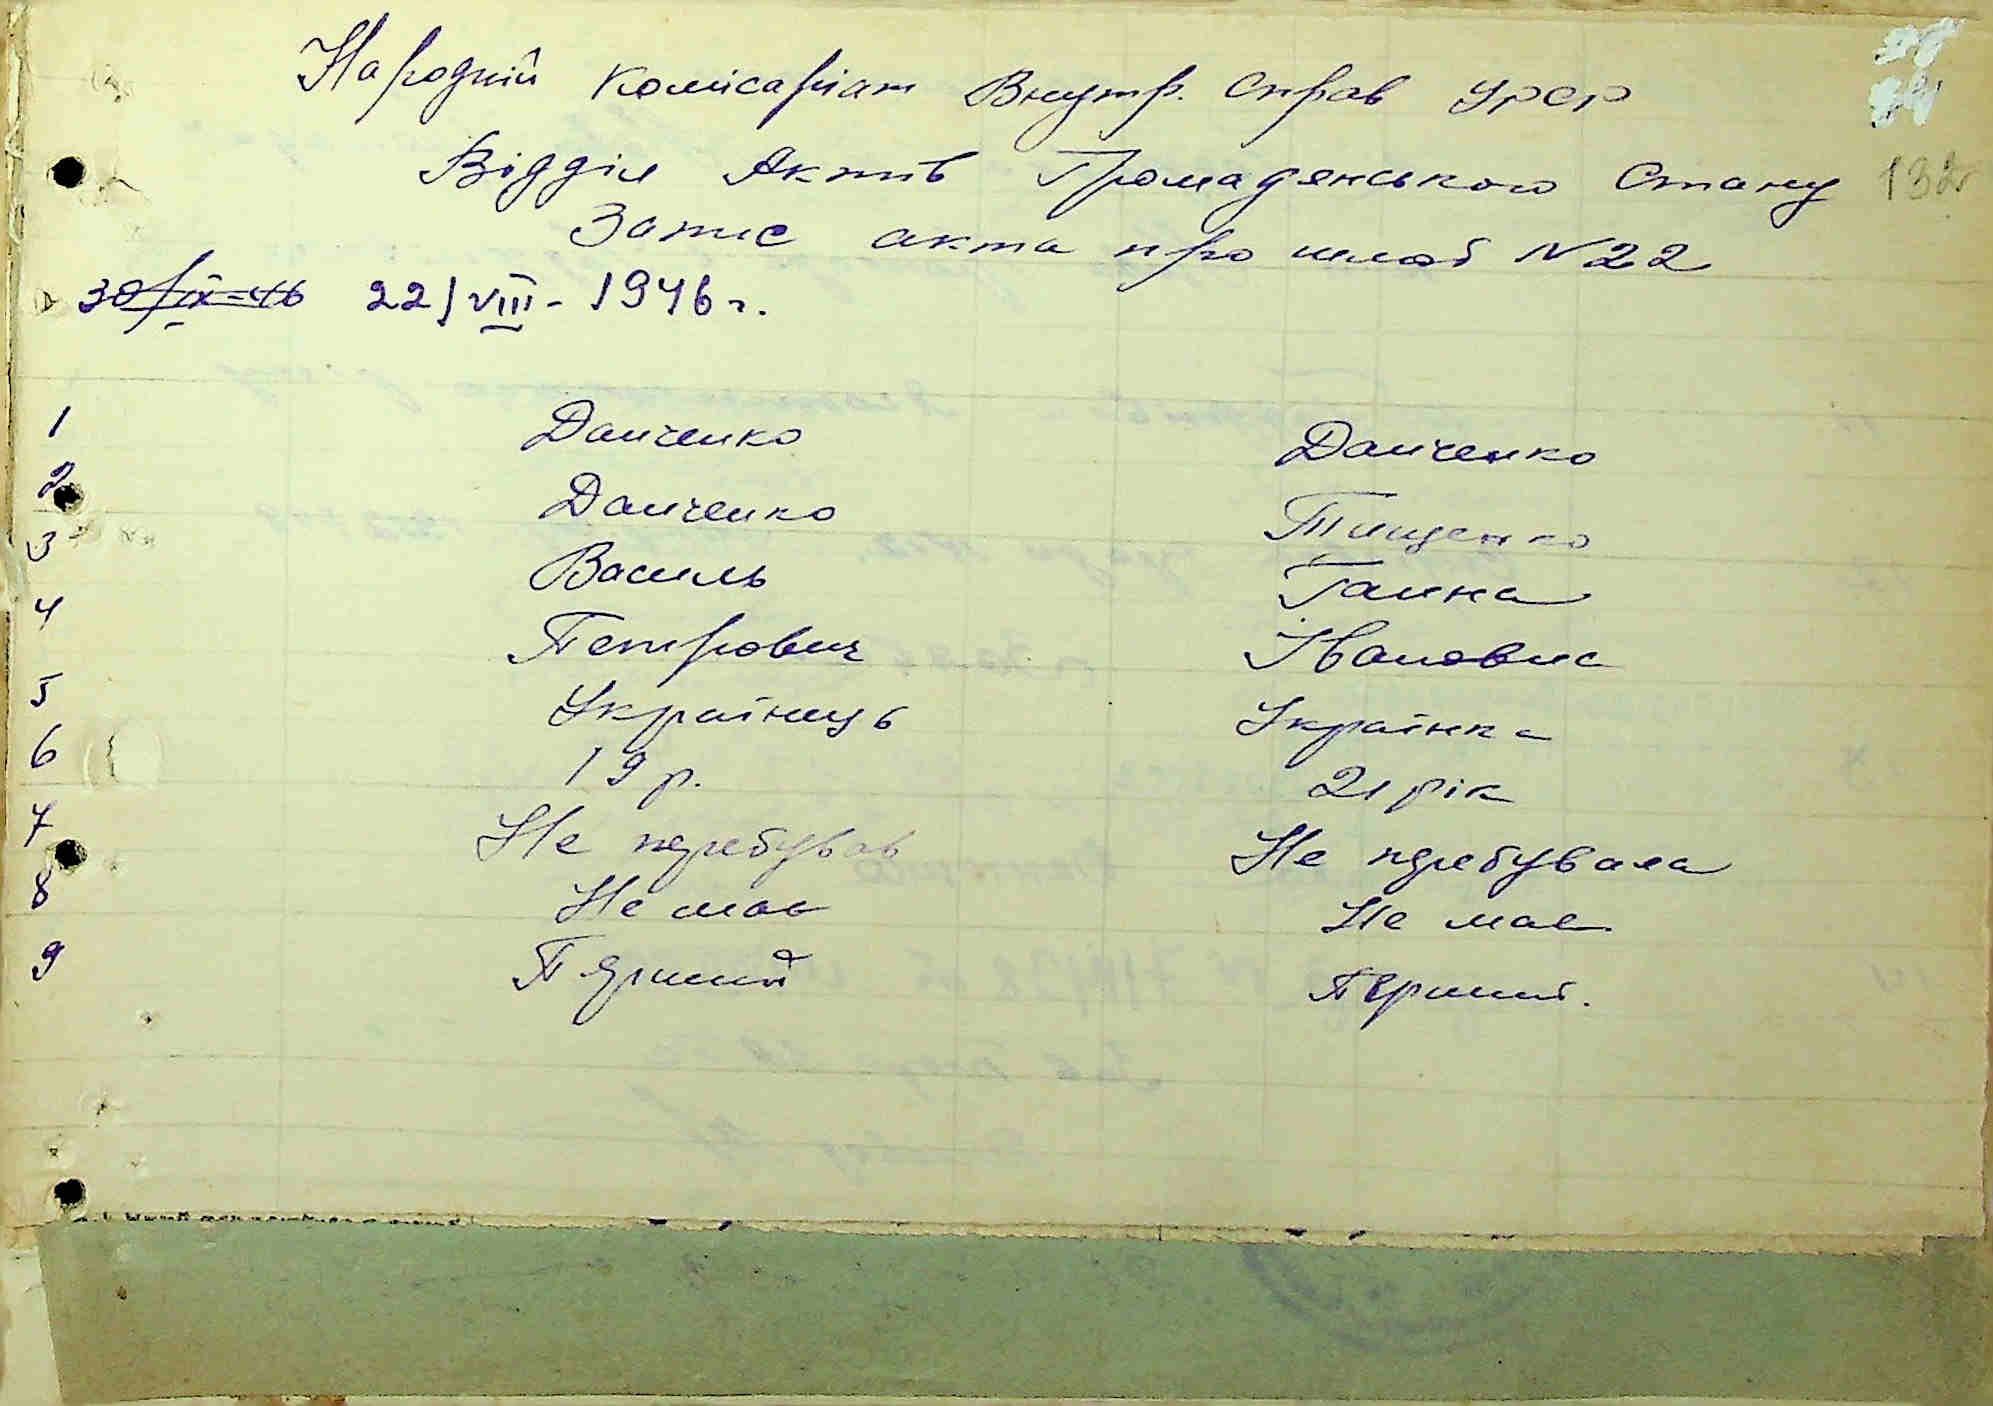 Народній Комісаріат Внутр. Справ УРСР
Відділ Актів Громадянського Стану
132
Запис акта про шлюб N 22
30/IX-46 22/VIII - 1946 г.
1 Данченко Данченко
2 Данченко Тищенко
3 Василь Ганна
4 Петрович Ивановна
5 Українець Українка
6 19 р. 21 рік
7 Не перебував Не перебувала
8 Не має Не має
9 Перший Перший.